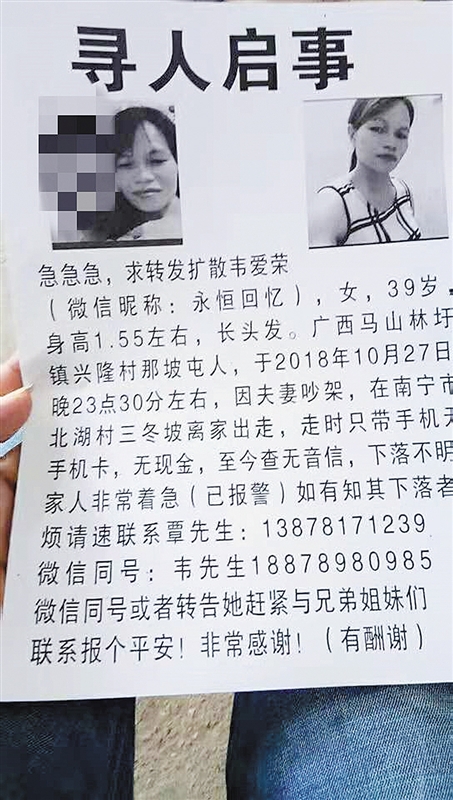 寻人启事
急急急，求转发扩散韦爱荣
（微信昵称：永恒回忆），女，39岁，
身高1.55左右，长头发。广西马山林圩
镇兴隆村那坡屯人，于2018年10月27日
晚23点30分左右，因夫妻吵架，在南宁市
北湖村三冬坡离家出走，走时只带手机无
手机卡，无现金，至今查无音信，下落不明
家人非常着急（已报警）如有知其下落者
烦请速联系覃先生：13878171239
微信同号：韦先生18878980985
微信同号或者转告她赶紧与兄弟姐妹们
联系报个平安！非常感谢！（有酬谢）